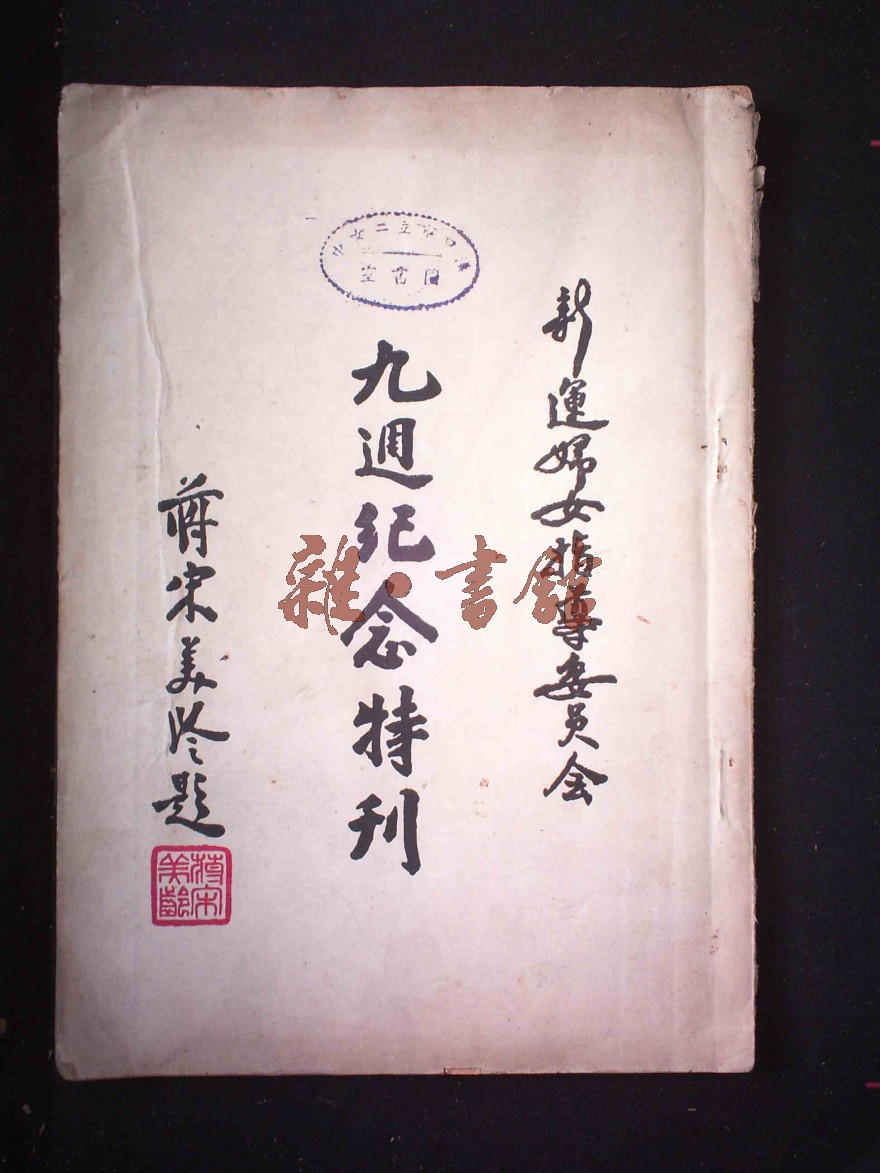 新運婦女指導委员会
九週紀念特刊
蔣宋美齡題
蔣宋美齡
圖書室
雜·書館